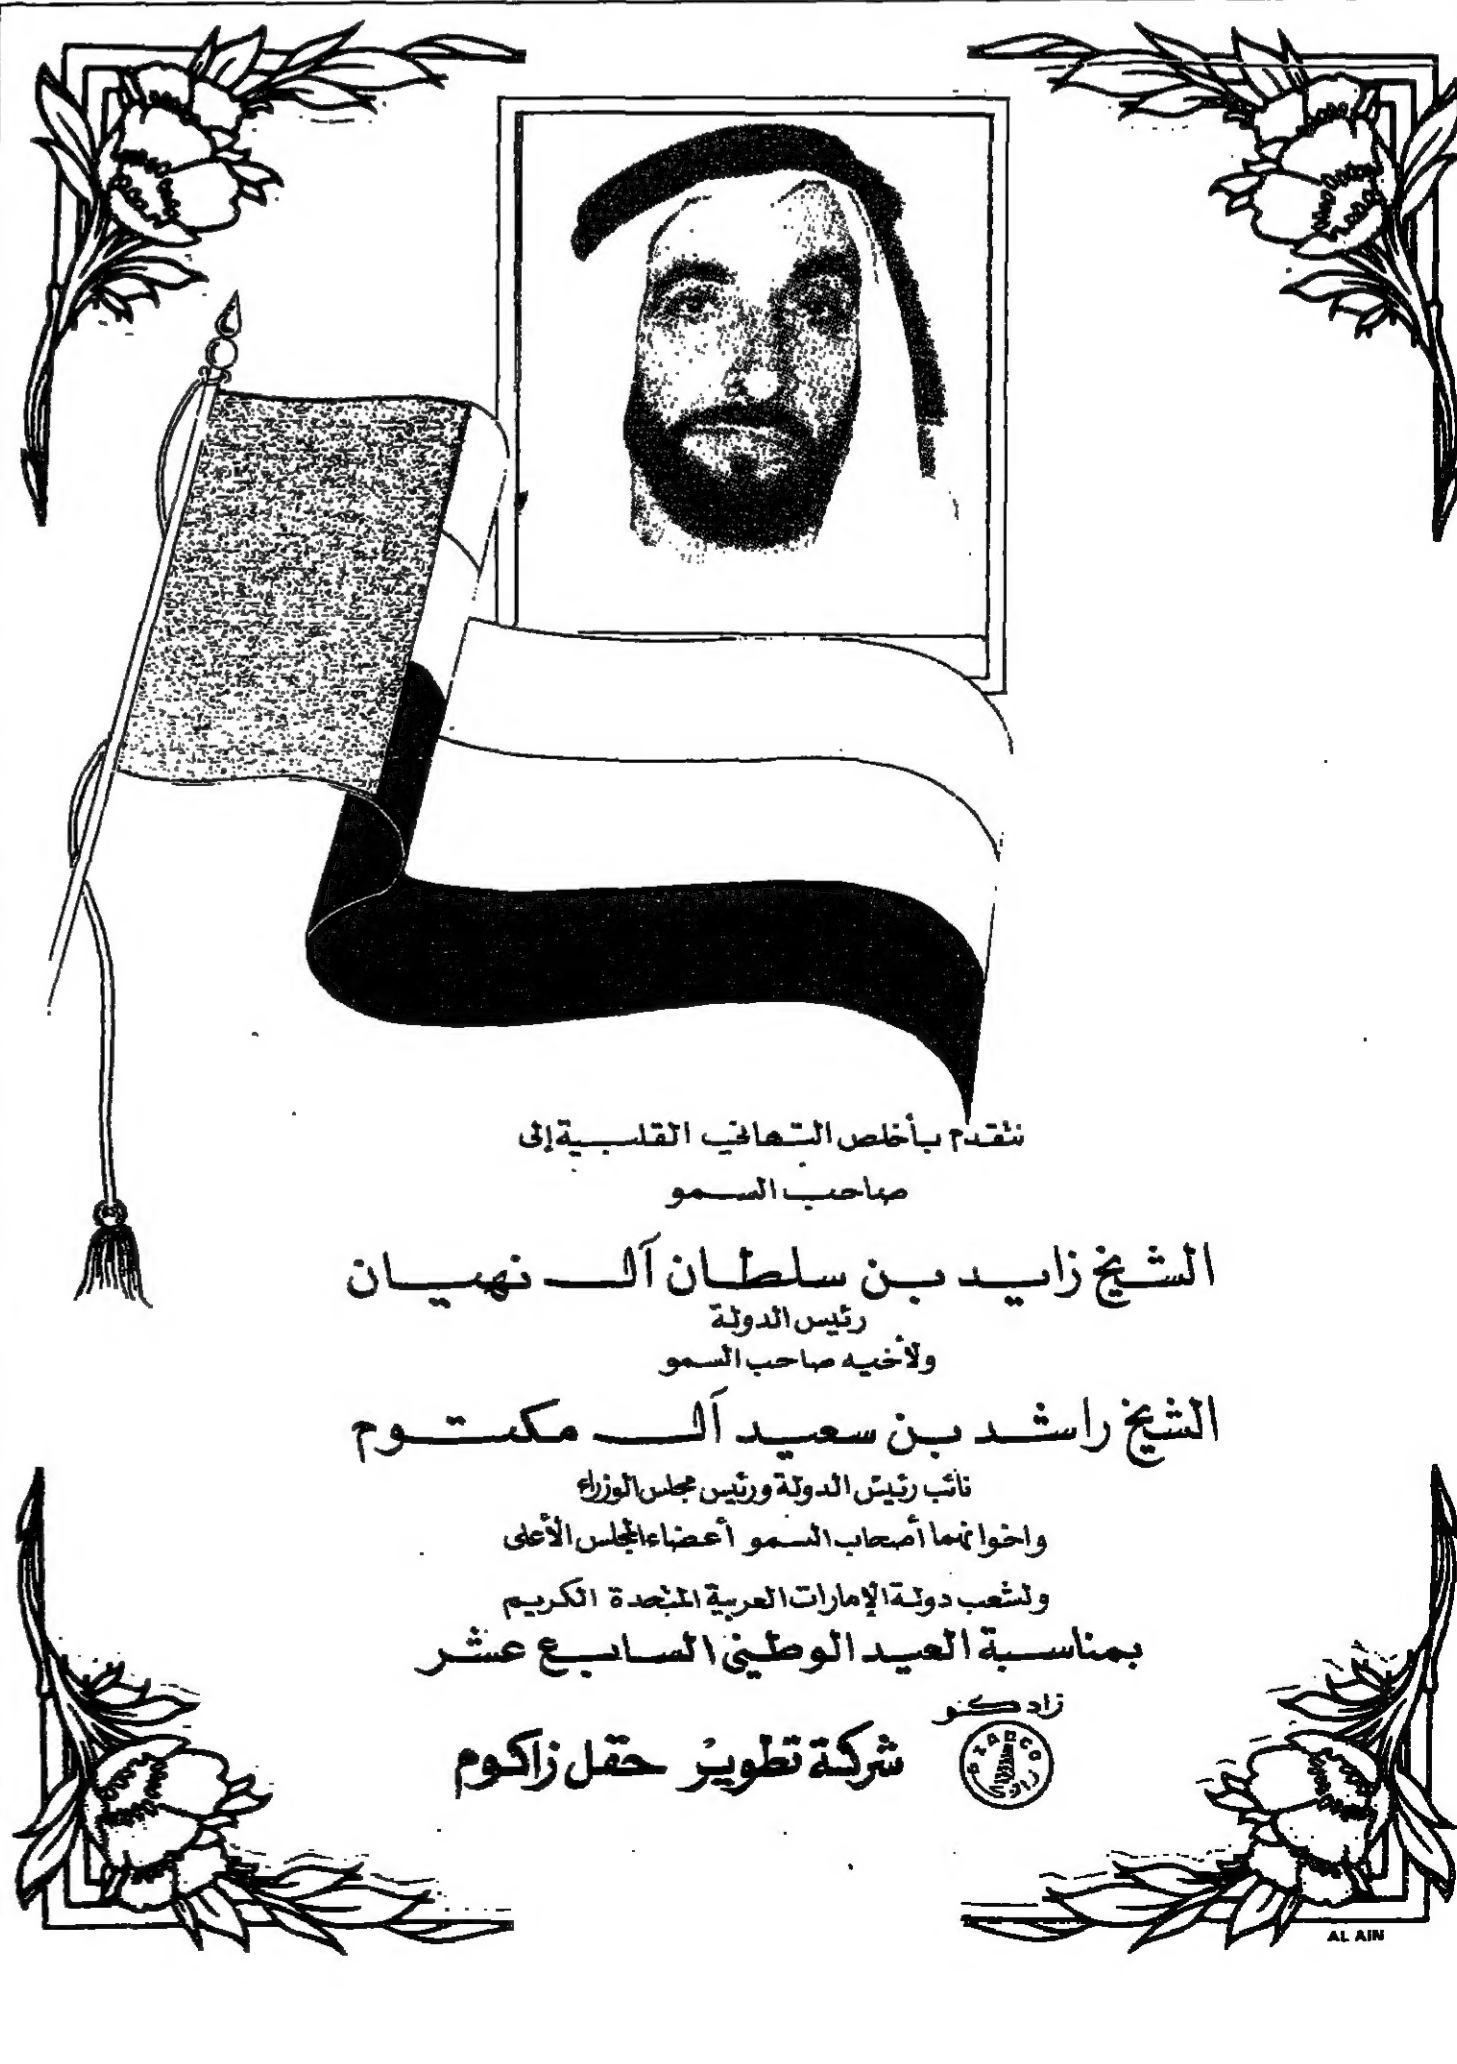 نتقدم بأخلص التهاني القلبية إلى
صاحب السمو
الشيخ زايد بن سلطان آل نهيان
رئيس الدولة
ولأخيه صاحب السمو
الشيخ راشد بن سعيد آل مكتوم
نائب رئيس الدولة ورئيس مجلس الوزراء
واخوانهما أصحاب السمو أعضاء المجلس الأعلى
ولشعب دولة الإمارات العربية المتحدة الكريم
بمناسبة العيد الوطني السابع عشر
زادكو
ZADCO
شركة تطوير حقل زاكوم
AL AIN